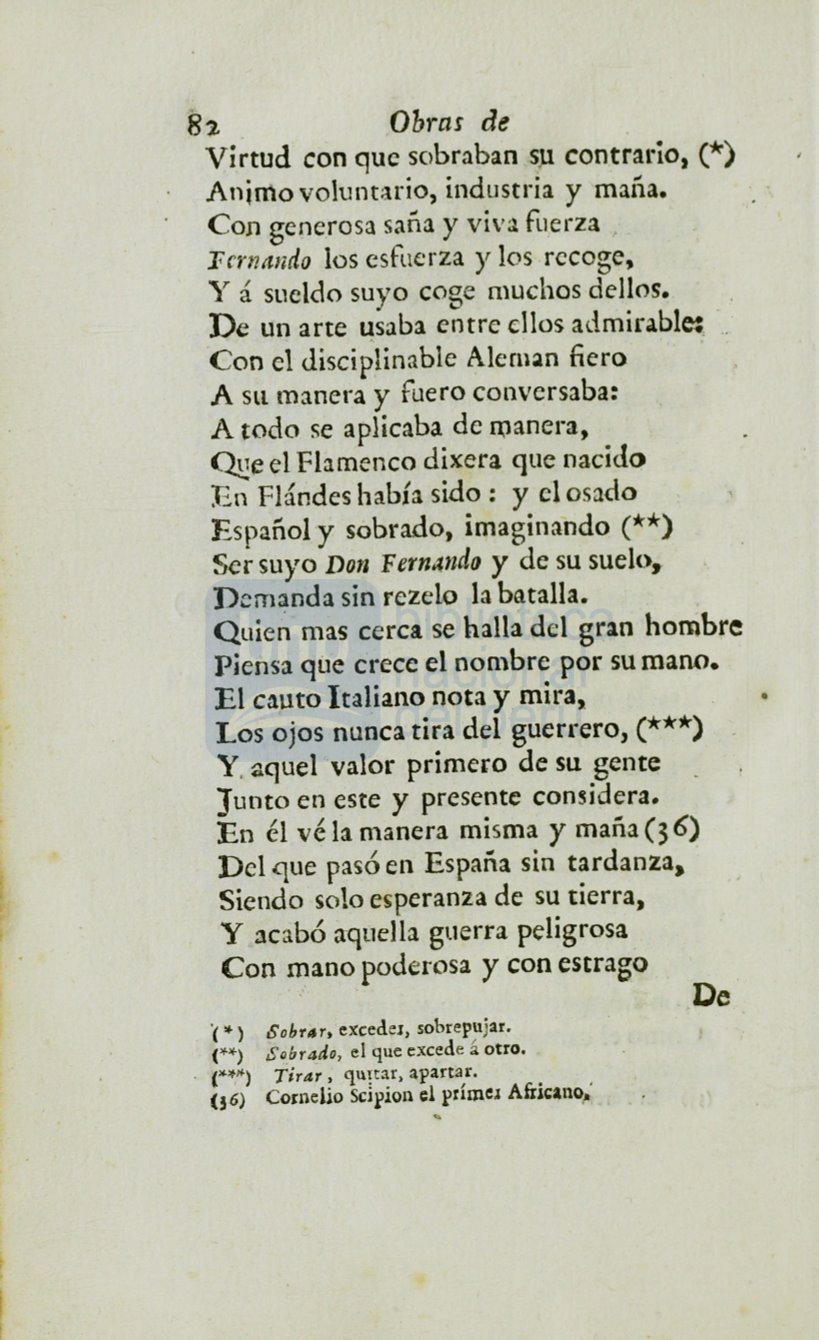 82 Obras de
Virtud con que sobraban su contrario, (*)
Animo voluntario, industria y maña.
Con generosa saña y viva fuerza
Fernando los esfuerza y los recoge,
Y á sueldo suyo coge muchos dellos.
De un arte usaba entre ellos admirable:
Con el disciplinable Aleman fiero
A su manera y fuero conversaba:
A todo se aplicaba de manera,
Que el Flamenco dixera que nacido
En Flándes había sido : y el osado
Español y sobrado, imaginando (**)
Ser suyo Don Fernando y de su suelo,
Demanda sin rezelo la batalla.
Quien mas cerca se halla del gran hombre
Piensa que crece el nombre por su mano.
El cauto Italiano nota y mira,
Los ojos nunca tira del guerrero, (***)
Y aquel valor primero de su gente
Junto en este y presente considera.
En él vé la manera misma y maña (36)
Del que pasó en España sin tardanza,
Siendo solo esperanza de su tierra,
Y acabó aquella guerra peligrosa
Con mano poderosa y con estrago
De
(*) Sobrar, exceder, sobrepujar.
(**) Sobrado, el que excede á otro.
(***) Tirar, quitar, apartar.
(36) Cornelio Scipion el primer Africano.